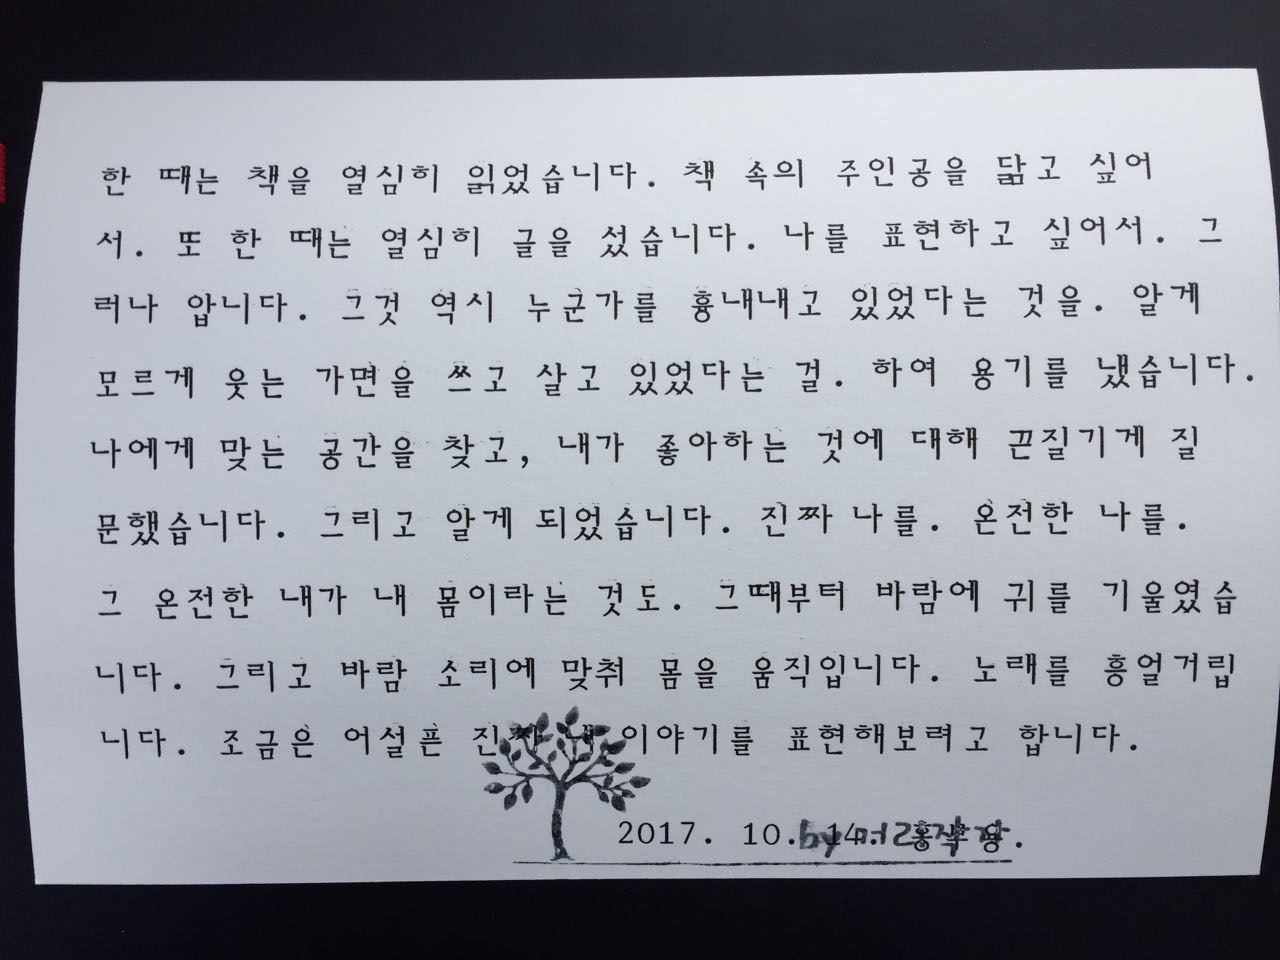 한 때는 책을 열심히 읽었습니다. 책 속의 주인공을 닮고 싶어
서. 또 한 때는 열심히 글을 섰습니다. 나를 표현하고 싶어서. 그
러나 압니다. 그것 역시 누군가를 흉내내고 있었다는 것을. 알게
모르게 웃는 가면을 쓰고 살고 있었다는 걸. 하여 용기를 냈습니다.
나에게 맞는 공간을 찾고, 내가 좋아하는 것에 대해 끈질기게 질
문했습니다. 그리고 알게 되었습니다. 진짜 나를. 온전한 나를.
그 온전한 내가 내 몸이라는 것도. 그때부터 바람에 귀를 기울였습
니다. 그리고 바람 소리에 맞춰 몸을 움직입니다. 노래를 흥얼거립
니다. 조금은 어설픈 진짜 내 이야기를 표현해보려고 합니다.
2017. 10. 14.